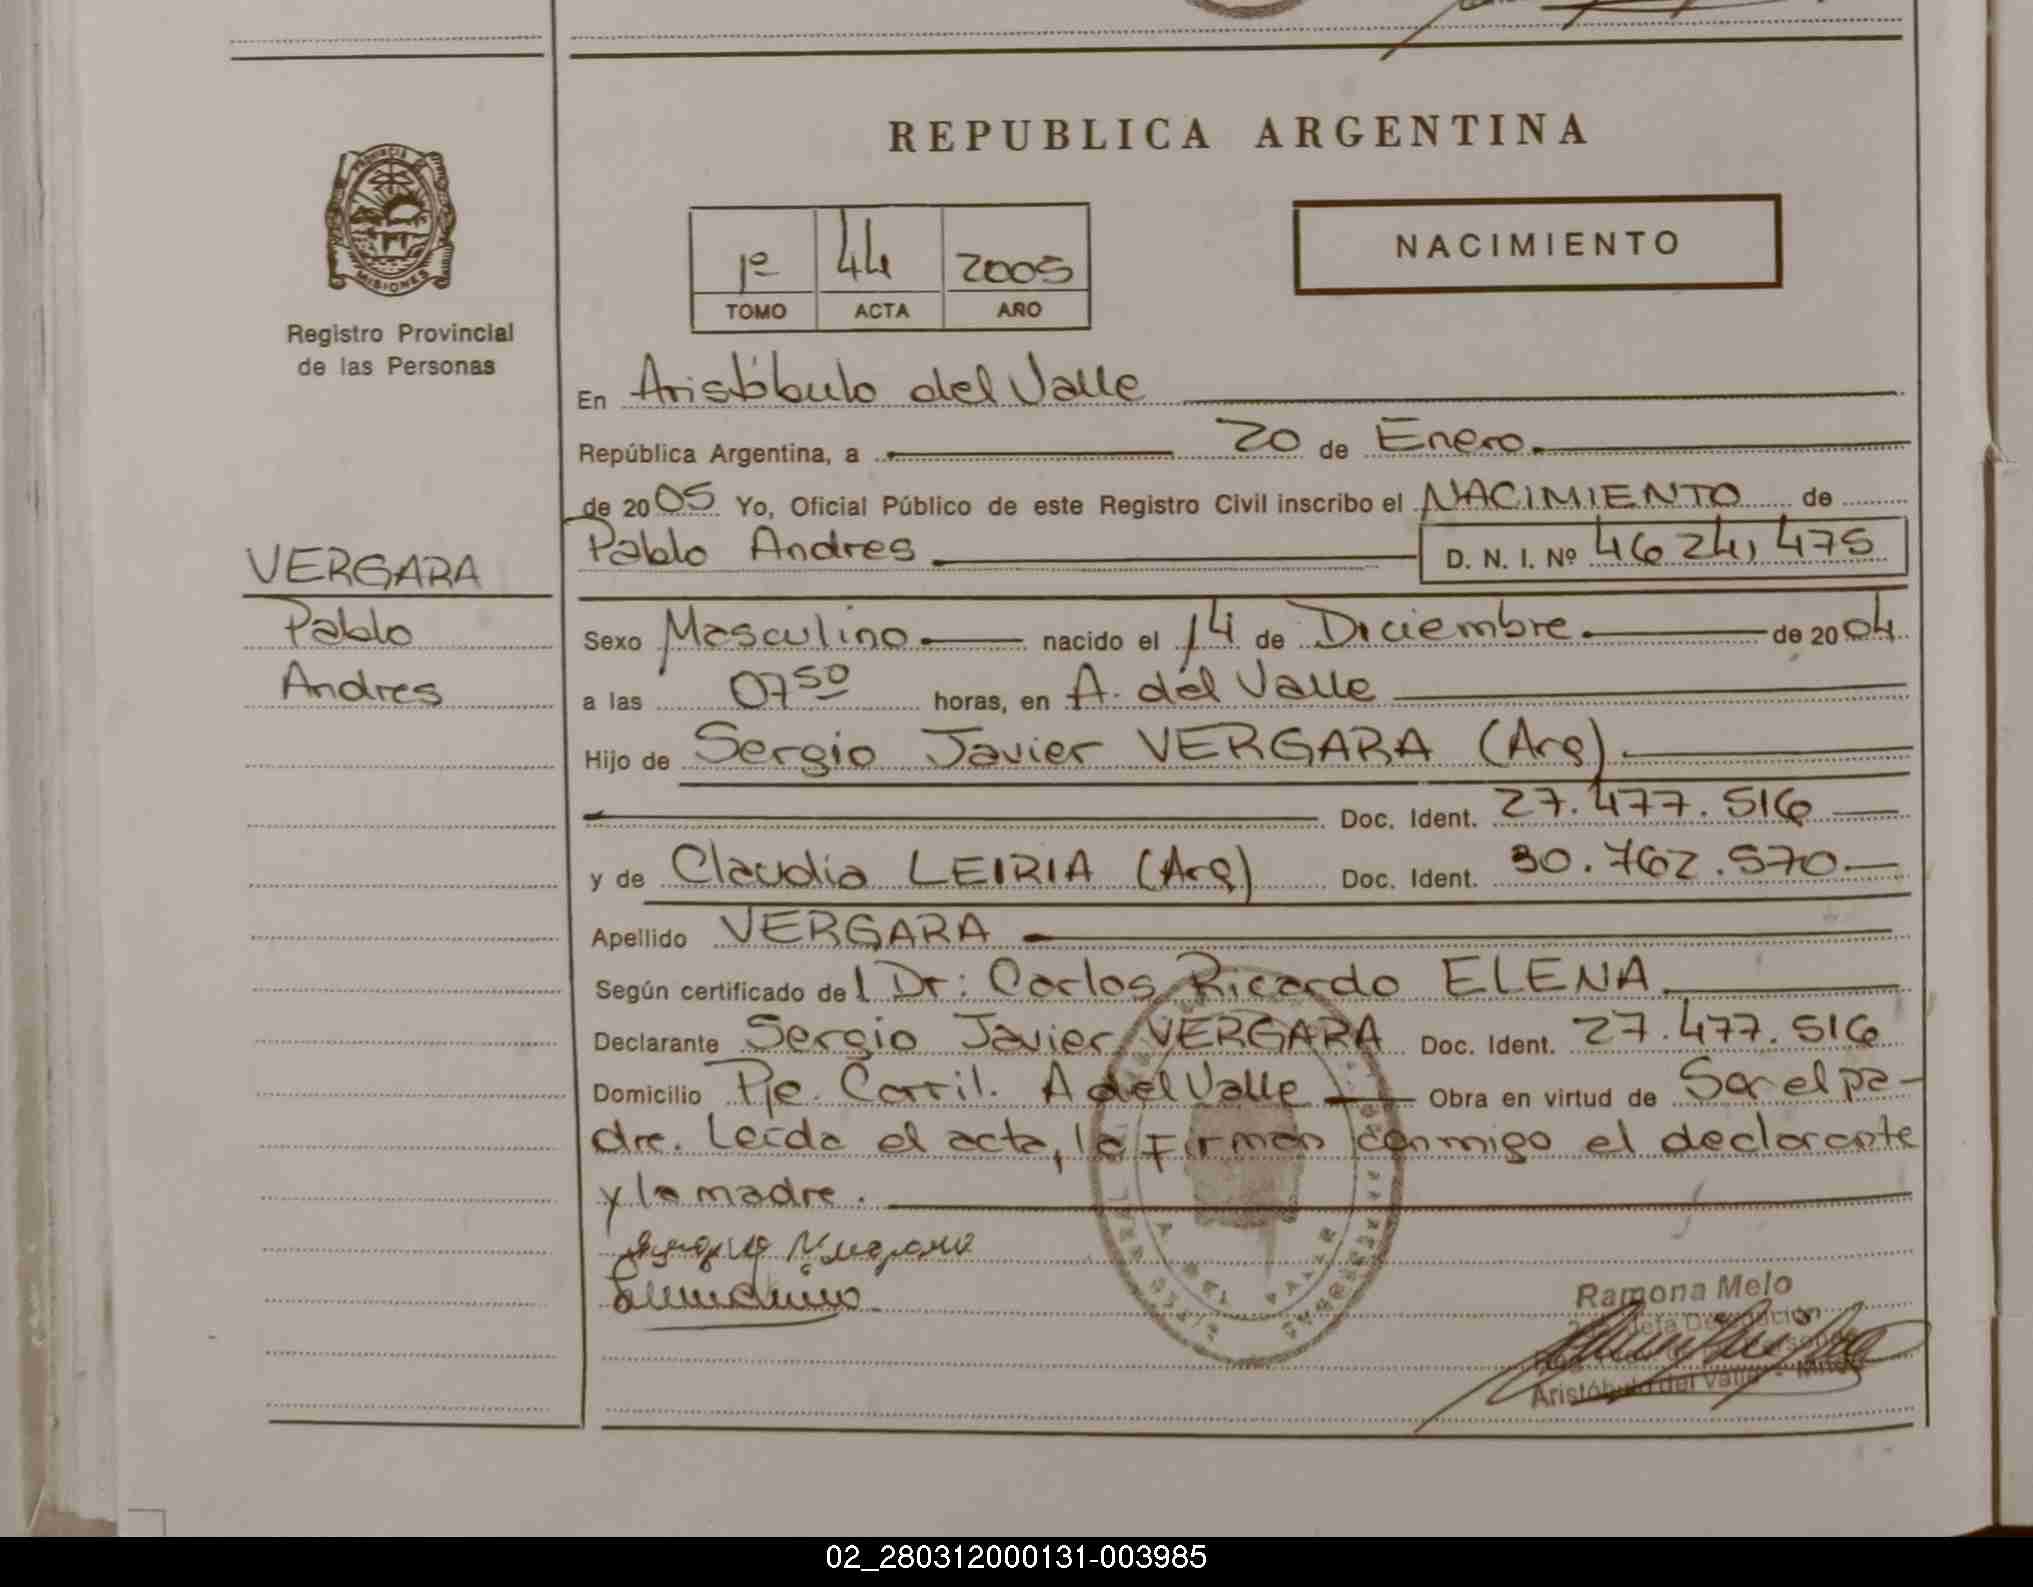 REPUBLICA ARGENTINA
PROVINCIA DE
MISIONES
Registro Provincial
de las Personas
1º 44 2005
TOMO ACTA AÑO
NACIMIENTO
En Aristóbulo del Valle
República Argentina, a 20 de Enero.
de 2005 Yo, Oficial Público de este Registro Civil inscribo el NACIMIENTO de
Pablo Andres D. N. I. Nº 46 241,475
VERGARA
Pablo
Andres
Sexo Masculino nacido el 14 de Diciembre de 2004
a las 07 50 horas, en A. del Valle
Hijo de Sergio Javier VERGARA (Arg)
Doc. Ident. 27.477.516
y de Claudia LEIRIA (Arg) Doc. Ident. 30.762.570.
Apellido VERGARA
Según certificado del Dr: Carlos Ricardo ELENA
Declarante Sergio Javier VERGARA Doc. Ident. 27.477.516
Domicilio Pje. Carril. A del Valle Obra en virtud de Ser el pa-
dre. Leída el acta, la firman conmigo el declarante
y la madre.
Ramona Melo
Aristóbulo del Valle - Mnes
02_280312000131-003985